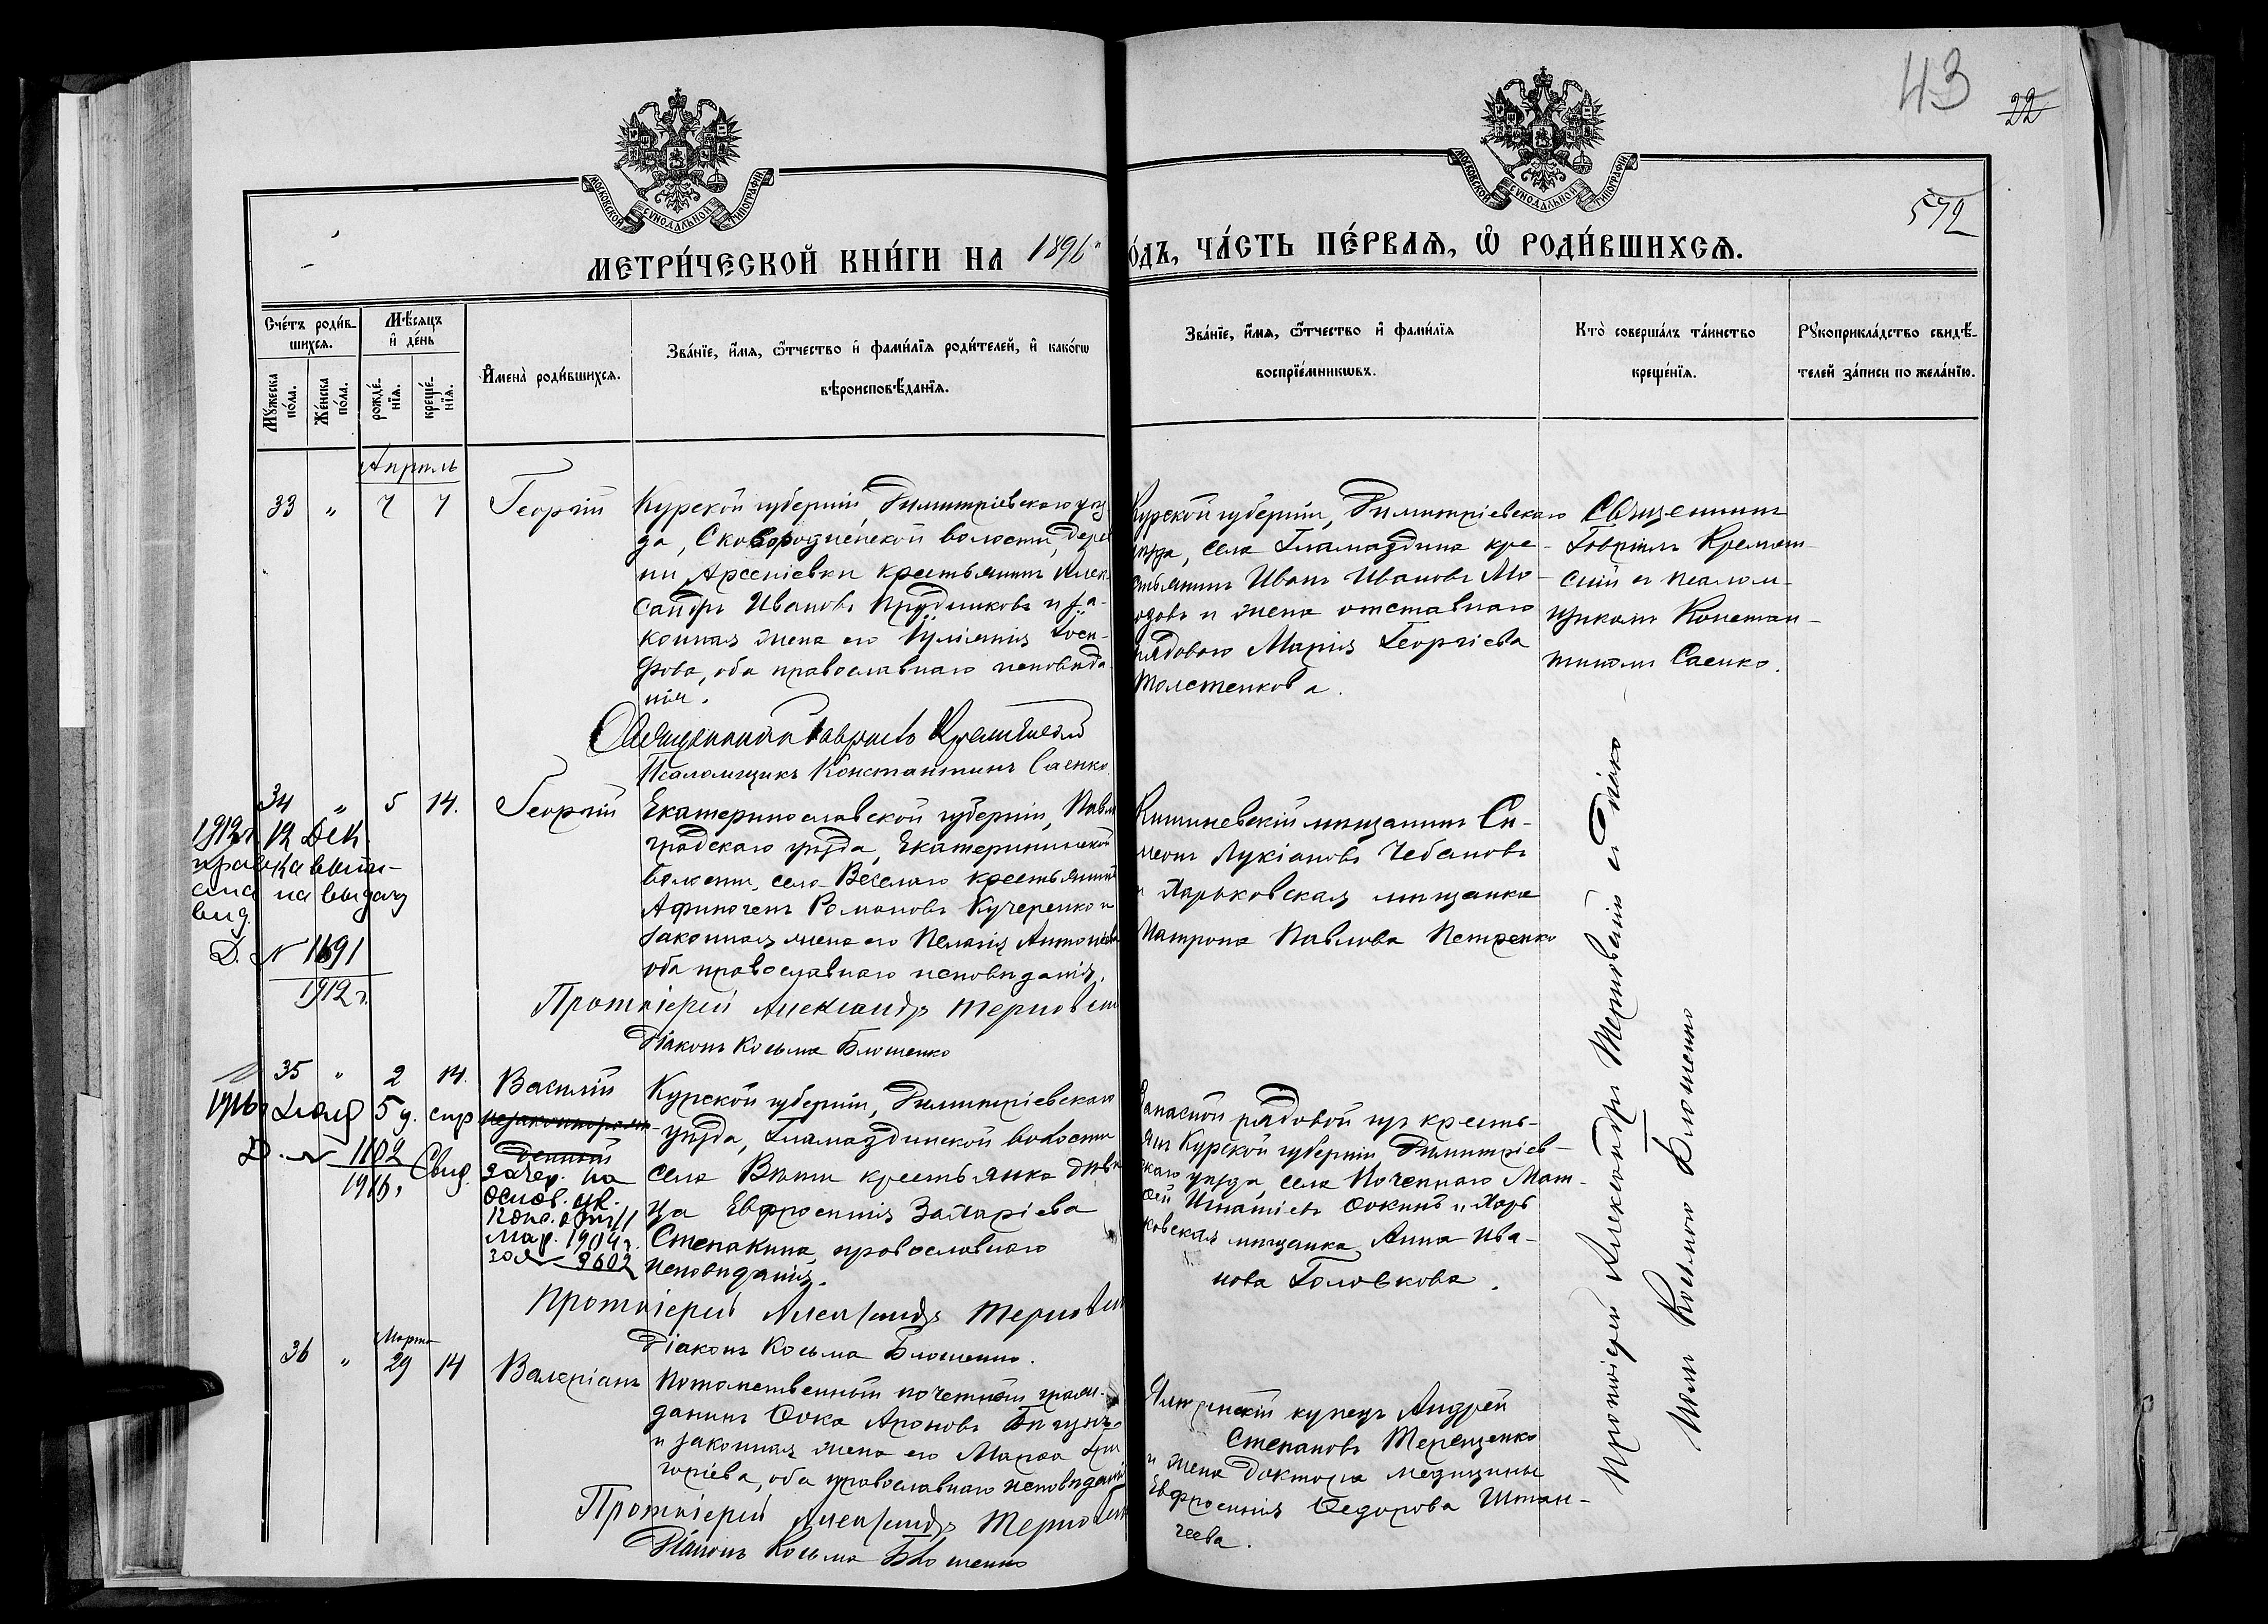 43
22
572
МОСКОВСКОЙ СѴНОДАЛЬНОЙ ТИПОГРАФІИ
МОСКОВСКОЙ СѴНОДАЛЬНОЙ ТИПОГРАФІИ
МЕТРИ́ЧЕСКОЙ КНИ́ГИ НА 1896
О́ДЪ, ЧА́СТЬ ПЕ́РВАѦ, Ѡ҆ РОДИ́ВШИХСѦ.
Сче́тъ роди́в-
шихсѧ.
Мꙋжеска
по́ла.
Же́нска
по́ла.
Мѣ́сѧцъ
и҆ де́нь
рожде́-
нїѧ.
креще́-
нїѧ.
И҆мена̀ роди́вшихсѧ.
Зва́нїе, и҆́мѧ, ѻ҆́тчество и҆ фами́лїѧ роди́телей, и҆ како́гѡ
вѣроисповѣ́данїѧ.
Зва́нїе, и҆́мѧ, ѻ҆́тчество и҆ фами́лїѧ
воспрїе́мникѡвъ.
Кто̀ соверша́лъ та́инство
креще́нїѧ.
Рꙋкоприкла́дство свидѣ́-
телей за́писи по жела́нїю.
Апрѣль
33 " 7 7 Георгій
Курской губерніи, Димитріевскаго уѣз-
да, Сковороднен­ской волости, дерев
ни Арсеніевки крестьянинъ Алек-
сандръ Ивановъ Прудниковъ и за-
конная жена его Іуліанія Іоси-
фова, оба православнаго исповѣда-
нія.
Священникъ Гавріилъ
Псаломщикъ Константинъ Саенко
Курской губерніи, Димитріевскаго
уѣзда, села Гламаздина кре-
стьянинъ Иванъ Ивановъ
и жена отставнаго
рядоваго Марія Георгіева
Толстенкова.
Священникъ
Гавріилъ
съ псалом-
щикомъ Констан-
тиномъ Саенко.
34 " 5 14. Георгій
1912 г. 12 Дек.
выпи-
сана на выдачу
вид.
Д. № 1691
1912 г.
Екатеринославской губерніи, Павло
градскаго уѣзда, Екатерининской
волости, села Веселаго крестьянинъ
Афиногенъ Романовъ Кучеренко и
законная жена его Пелагія Антоніева
оба православнаго исповѣданія.
Протоіерей Александръ
Діаконъ Косьма Блошенко
Кишиневскій мѣщанинъ Си-
меонъ Лукіановъ Чебановъ
и Харьковская мѣщанка
Матрона Павлова Петренко
35 " 2 14. Василій
1916 г. 5 д.
Д. № 1102
1916 г.
Свид.
незаконнорож-
денный
зачер. на
основ. ук.
Конс. отъ 11
мар. 1904 г.
за № 8602
Курской губерніи, Димитріевскаго
уѣзда, Гламаздинской волости
села крестьянка дѣви
ца Евфросинія Захаріева
Степакина, православнаго
исповѣданія.
Протоіерей Александръ
Діаконъ Косьма Блошенко.
Запасной рядовой изъ кресть-
янъ Курской губерніи Димитріев-
скаго уѣзда, села Мат-
ѳей Игнатіевъ и Харь
ковская мѣщанка Анна Ива-
нова Головкова.
Марта
36 " 29 14 Валеріанъ
Потомственный почетный граж-
данинъ Ѳока
и законная жена его Марѳа Гри
горіева, оба православнаго исповѣданія
Протоіерей Александръ
Діаконъ Косьма Блошенко
купецъ Андрей
Степановъ Терещенко
и жена Доктора медицины
Евфросинія Ѳедорова Штан-
геева.
Протоіерей Александръ
Косьмою Блошенко